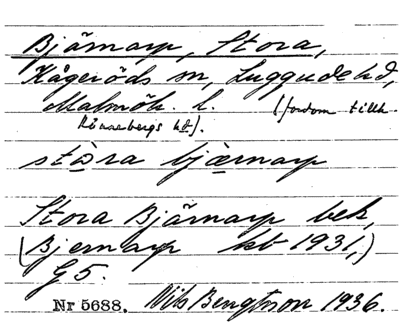 Bjärnarp, Stora,
Kågeröds sn, Luggude hd,
Malmöh. l. (fordom tillh.
Rönnebergs hd).
stòra bjæ̀rnarp
Stora Bjärnarp bek,
(Bjernarp kb 1931,)
G5.
Nr 5688. Nils Bengtsson 1936.